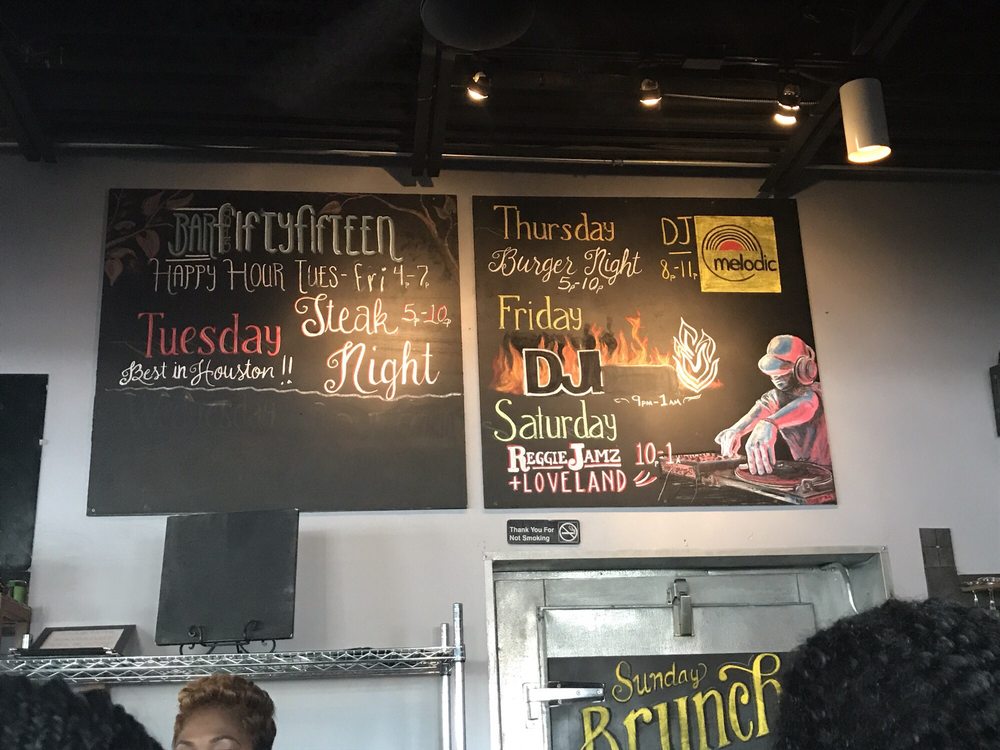 BAR FIFTYFIFTEEN
HAPPY HOUR TUES-Fri 4p-7p
Tuesday
Best in Houston!!
Steak 5p-10p
Night
Thursday
Burger Night
5p-10p
DJ
8p-11p
melodic
Friday
DJ
9PM-1AM
Saturday
REGGIE JAMZ
+LOVELAND
10p-1A
Thank You For
Not Smoking
Sunday
Brunch